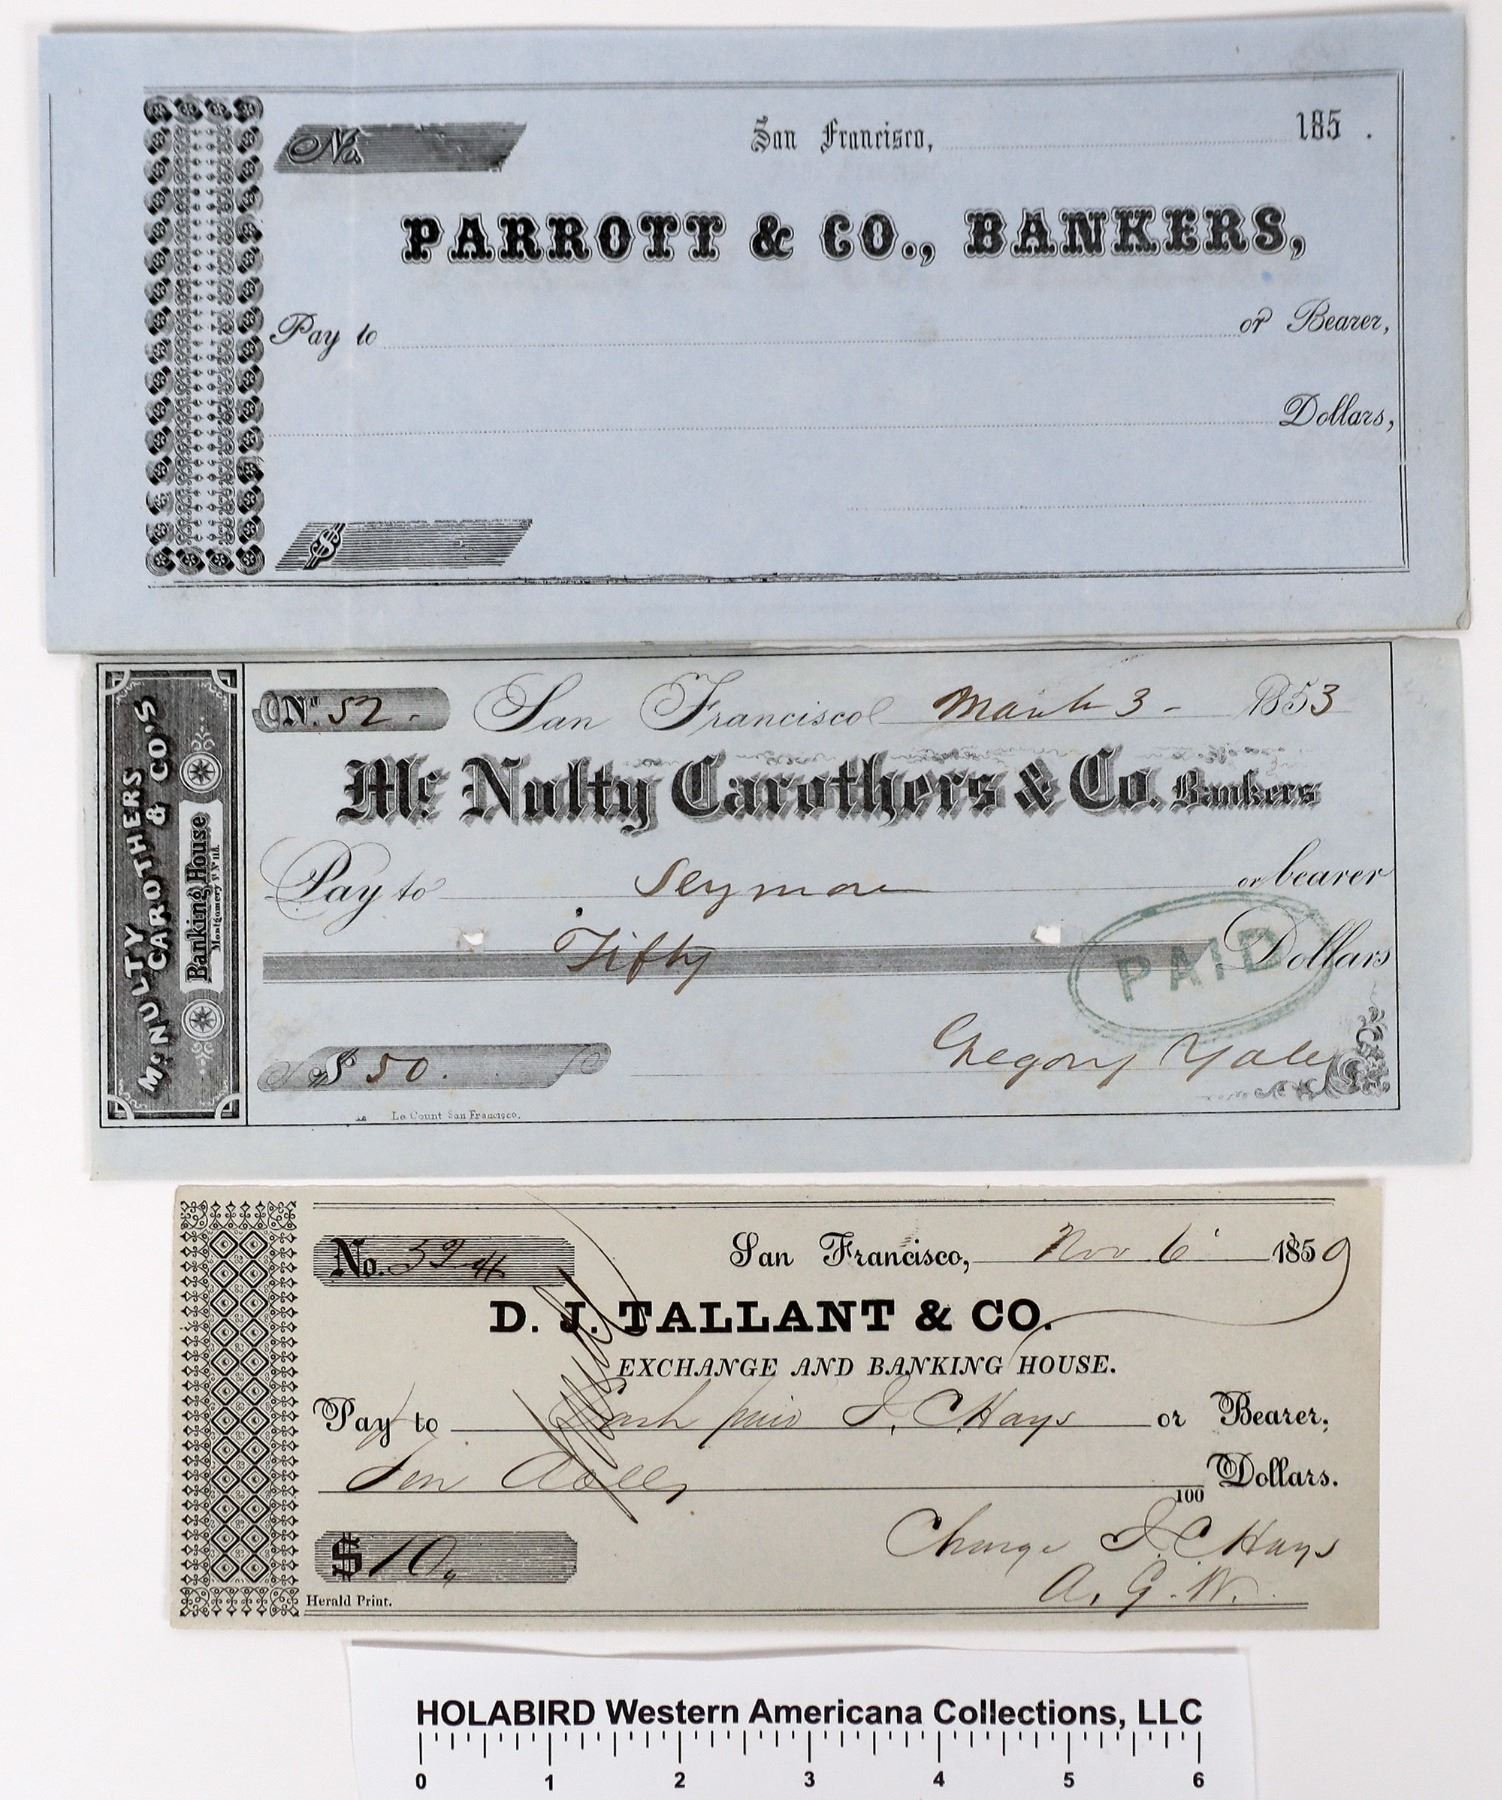 No.
San Francisco, 185 .
PARROTT & CO., BANKERS,
Pay to or Bearer,
Dollars,
$
McNULTY
CAROTHERS
& CO'S
Banking House
Montgomery St No 118.
No. 52. San Francisco March 3 - 1853
Mc Nulty Carothers & Co. Bankers
Pay to Seymour or bearer
Fifty Dollars
PAID
$ 50.
Gregory Yale
Le Count San Francisco.
No. 324 San Francisco, Nov 6 1859
D. J. TALLANT & CO.
EXCHANGE AND BANKING HOUSE.
Pay to Cash paid J. C Hays or Bearer,
Ten dolls 100 Dollars.
$ 10
Charge J. C Hays
A. G. W.
Herald Print.
HOLABIRD Western Americana Collections, LLC
0 1 2 3 4 5 6